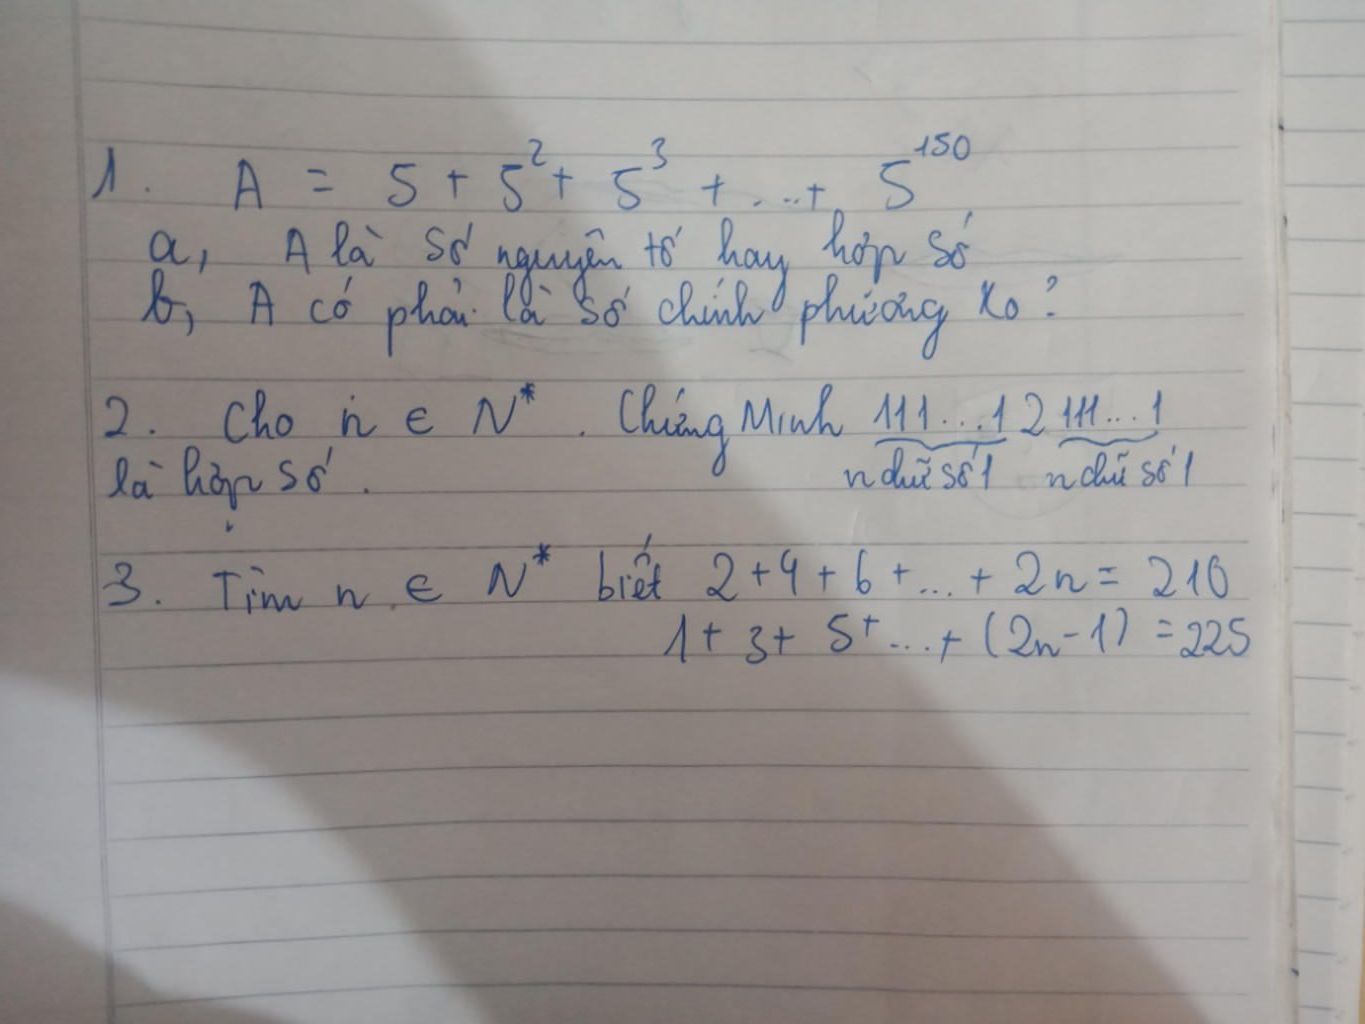 1. A = 5 + 5² + 5³ + ... + 5¹⁵⁰
a, A là số nguyên tố hay hợp số
b, A có phải là số chính phương ko?
2. Cho n ∈ N*. Chứng Minh 111...1 2 111...1
n chữ số 1 n chữ số 1
là hợp số.
3. Tìm n ∈ N* biết 2+4+6+...+2n = 210
1+3+5+...+(2n-1) = 225